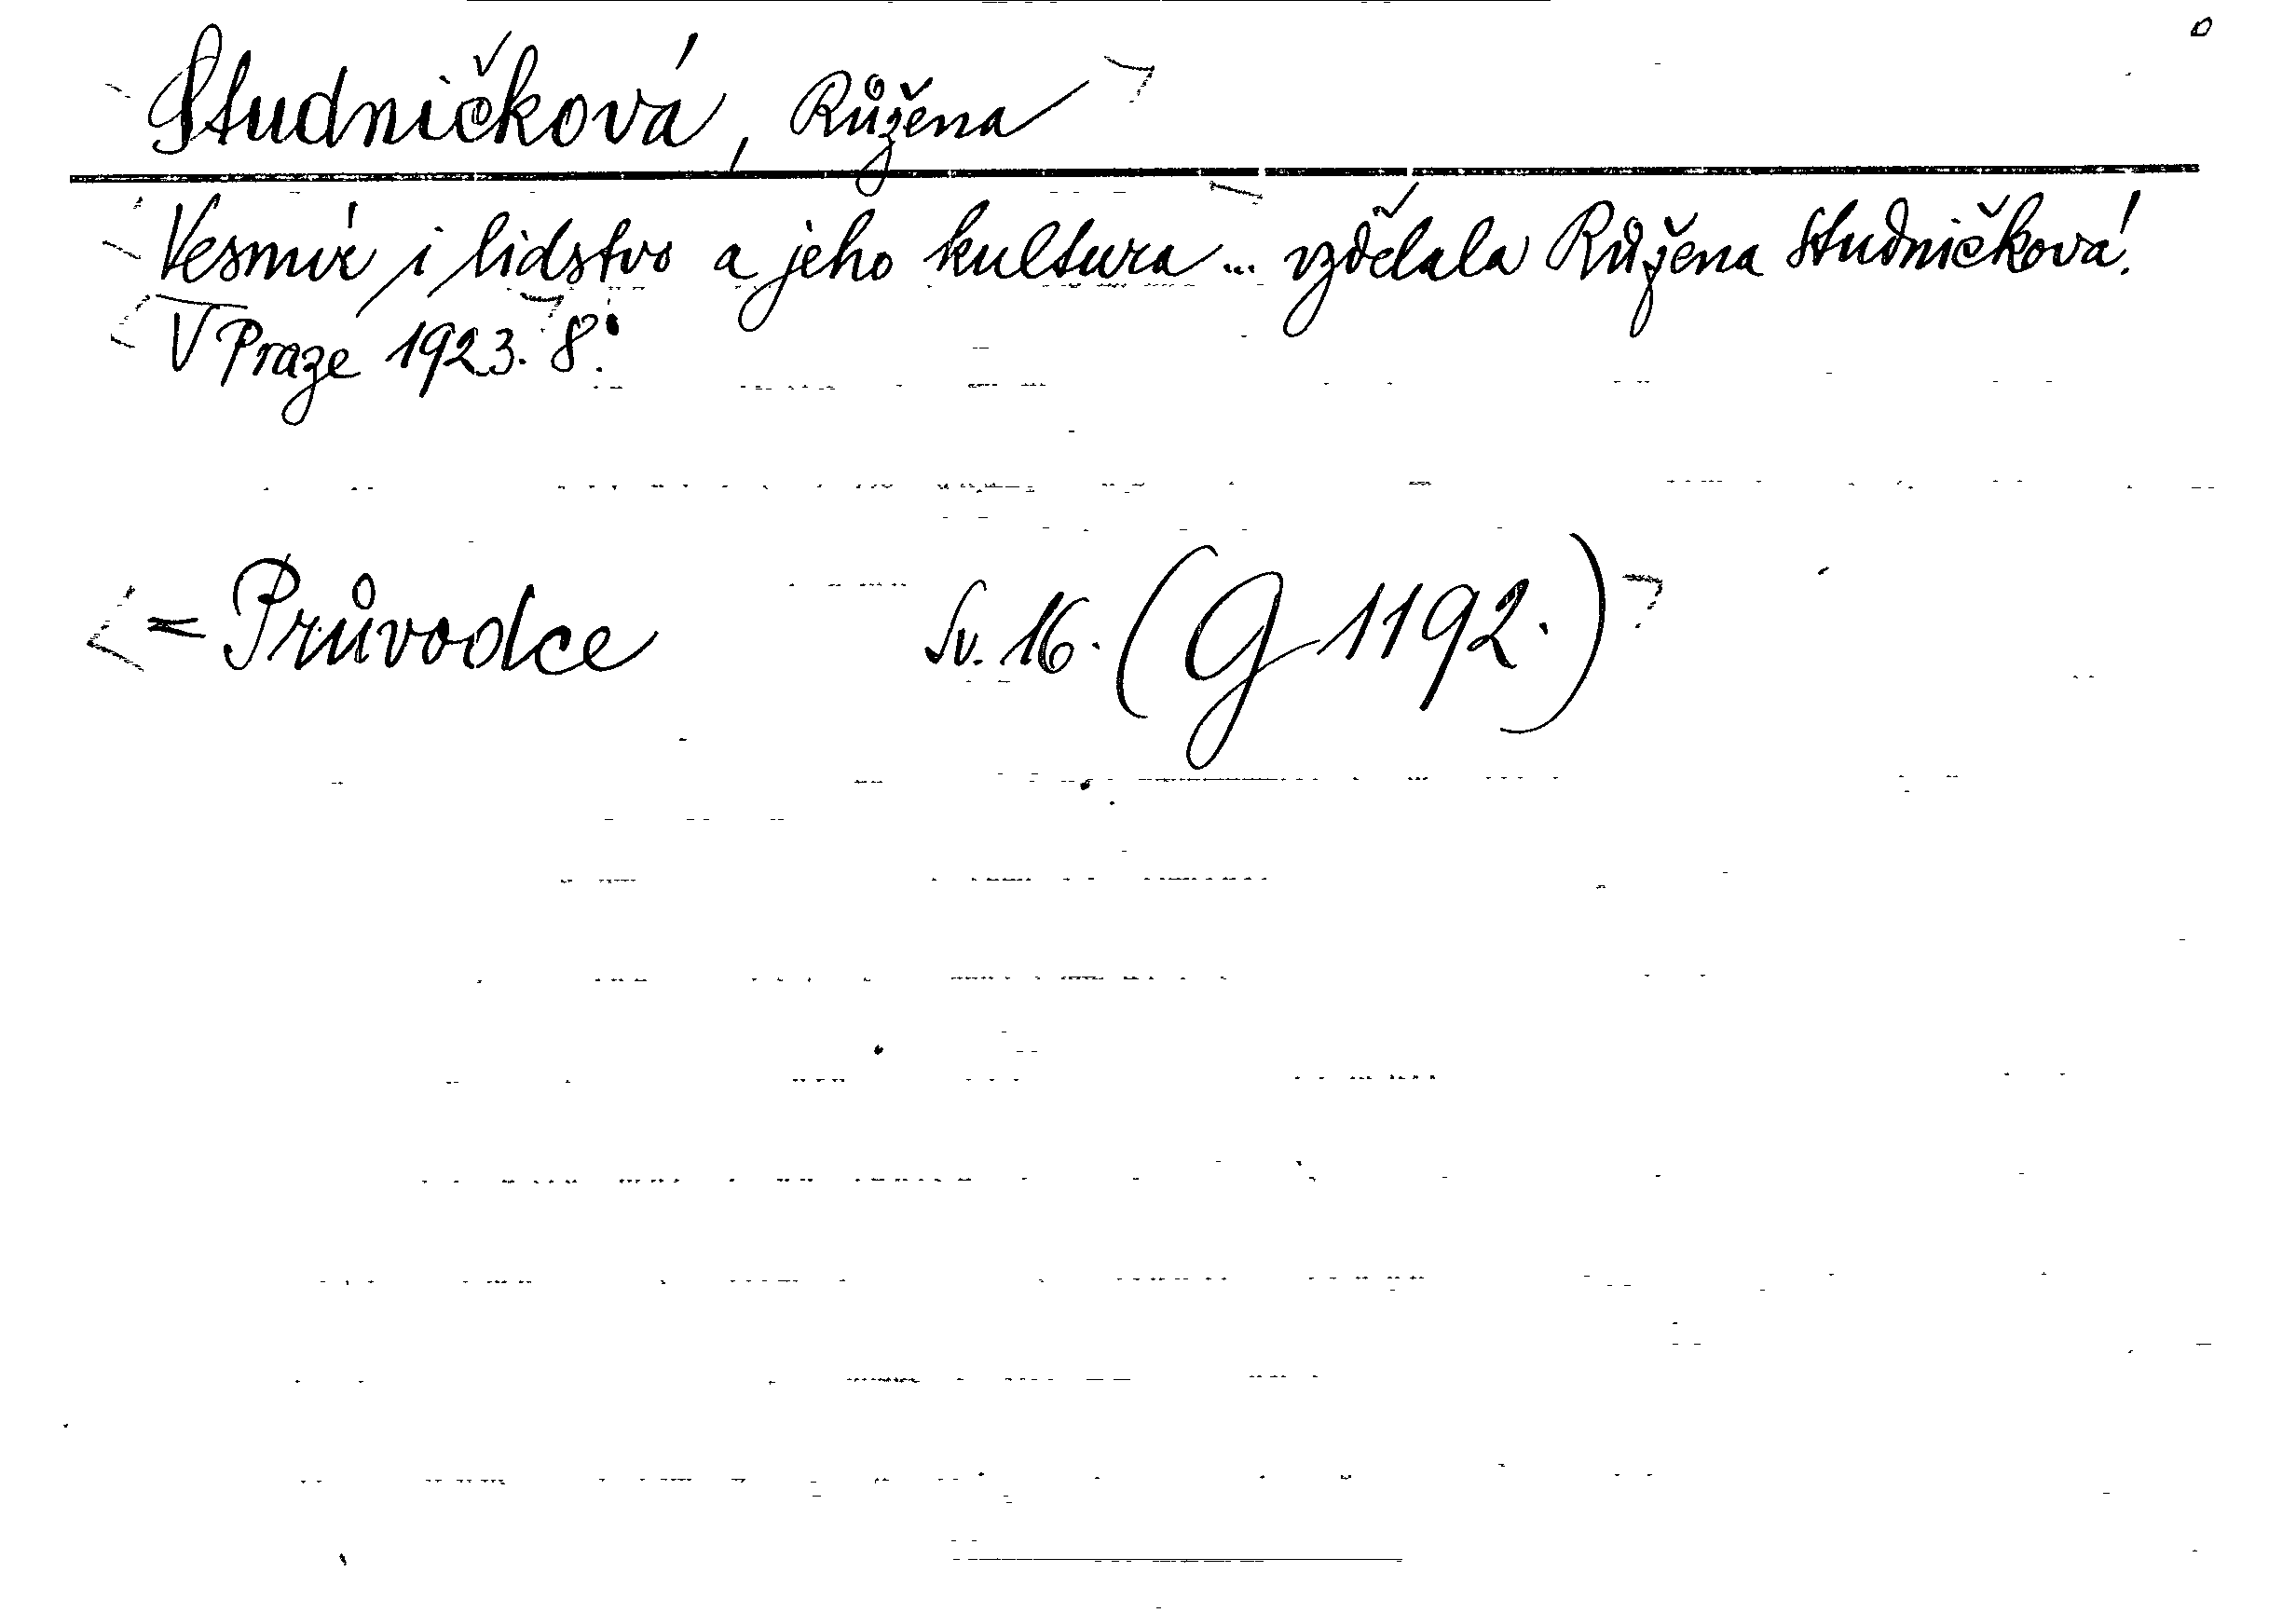 Studničková, Růžena
Vesmír i lidstvo a jeho kultura... vzdělala Růžena Studničková.
V Praze 1923. 8.°
= Průvodce Sv. 16. (G 1192.)